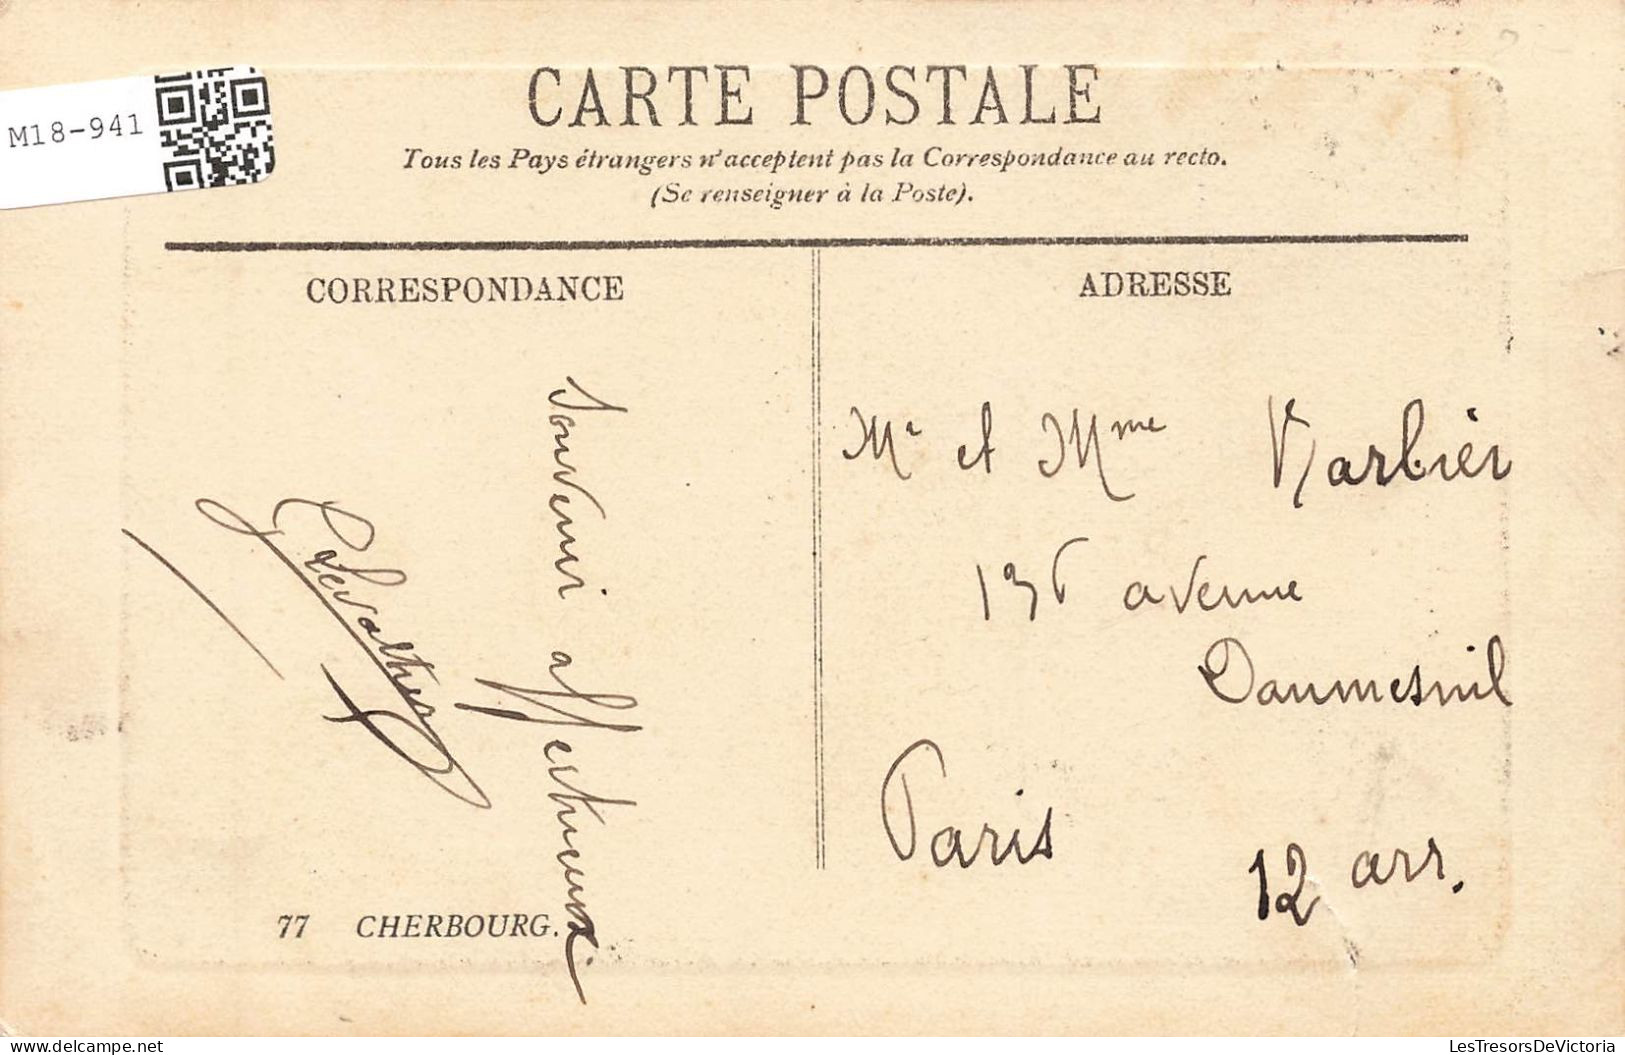 M18-941
CARTE POSTALE
Tous les Pays étrangers n'acceptent pas la Correspondance au recto.
(Se renseigner à la Poste).
CORRESPONDANCE
Souvenir affectueux
77 CHERBOURG.
ADRESSE
Mr et Mme
136 avenue
Daumesnil
Paris
12 arr.
LesTresorsDeVictoria